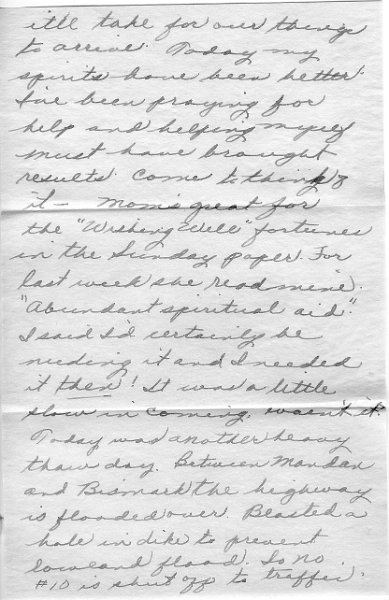 it'll take for our things
to arrive. Today my
spirits have been better.
I've been praying for
help and helping myself
must have brought
results. Come to think of
it — Mom's great for
the "Wishing Well" fortunes
in the Sunday paper. For
last week she read mine.
"Abundant spiritual aid".
I said I'd certainly be
needing it and I needed
it then! It was a little
slow in coming, wasn't it.
Today was another heavy
thaw day. Between Mandan
and Bismark the highway
is flooded over. Blasted a
hole in dike to prevent
lowland flood. So no.
#10 is shut off to traffic.